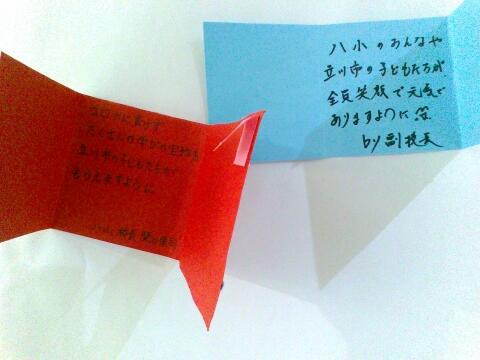 八小のみんなや
立川市の子どもたちが、
全員笑顔で元気で
ありますように 笑
by 副校長
コロナに負けず
たくさんの学びの宝物を
立川市の子どもたちが
もらえますように
校長